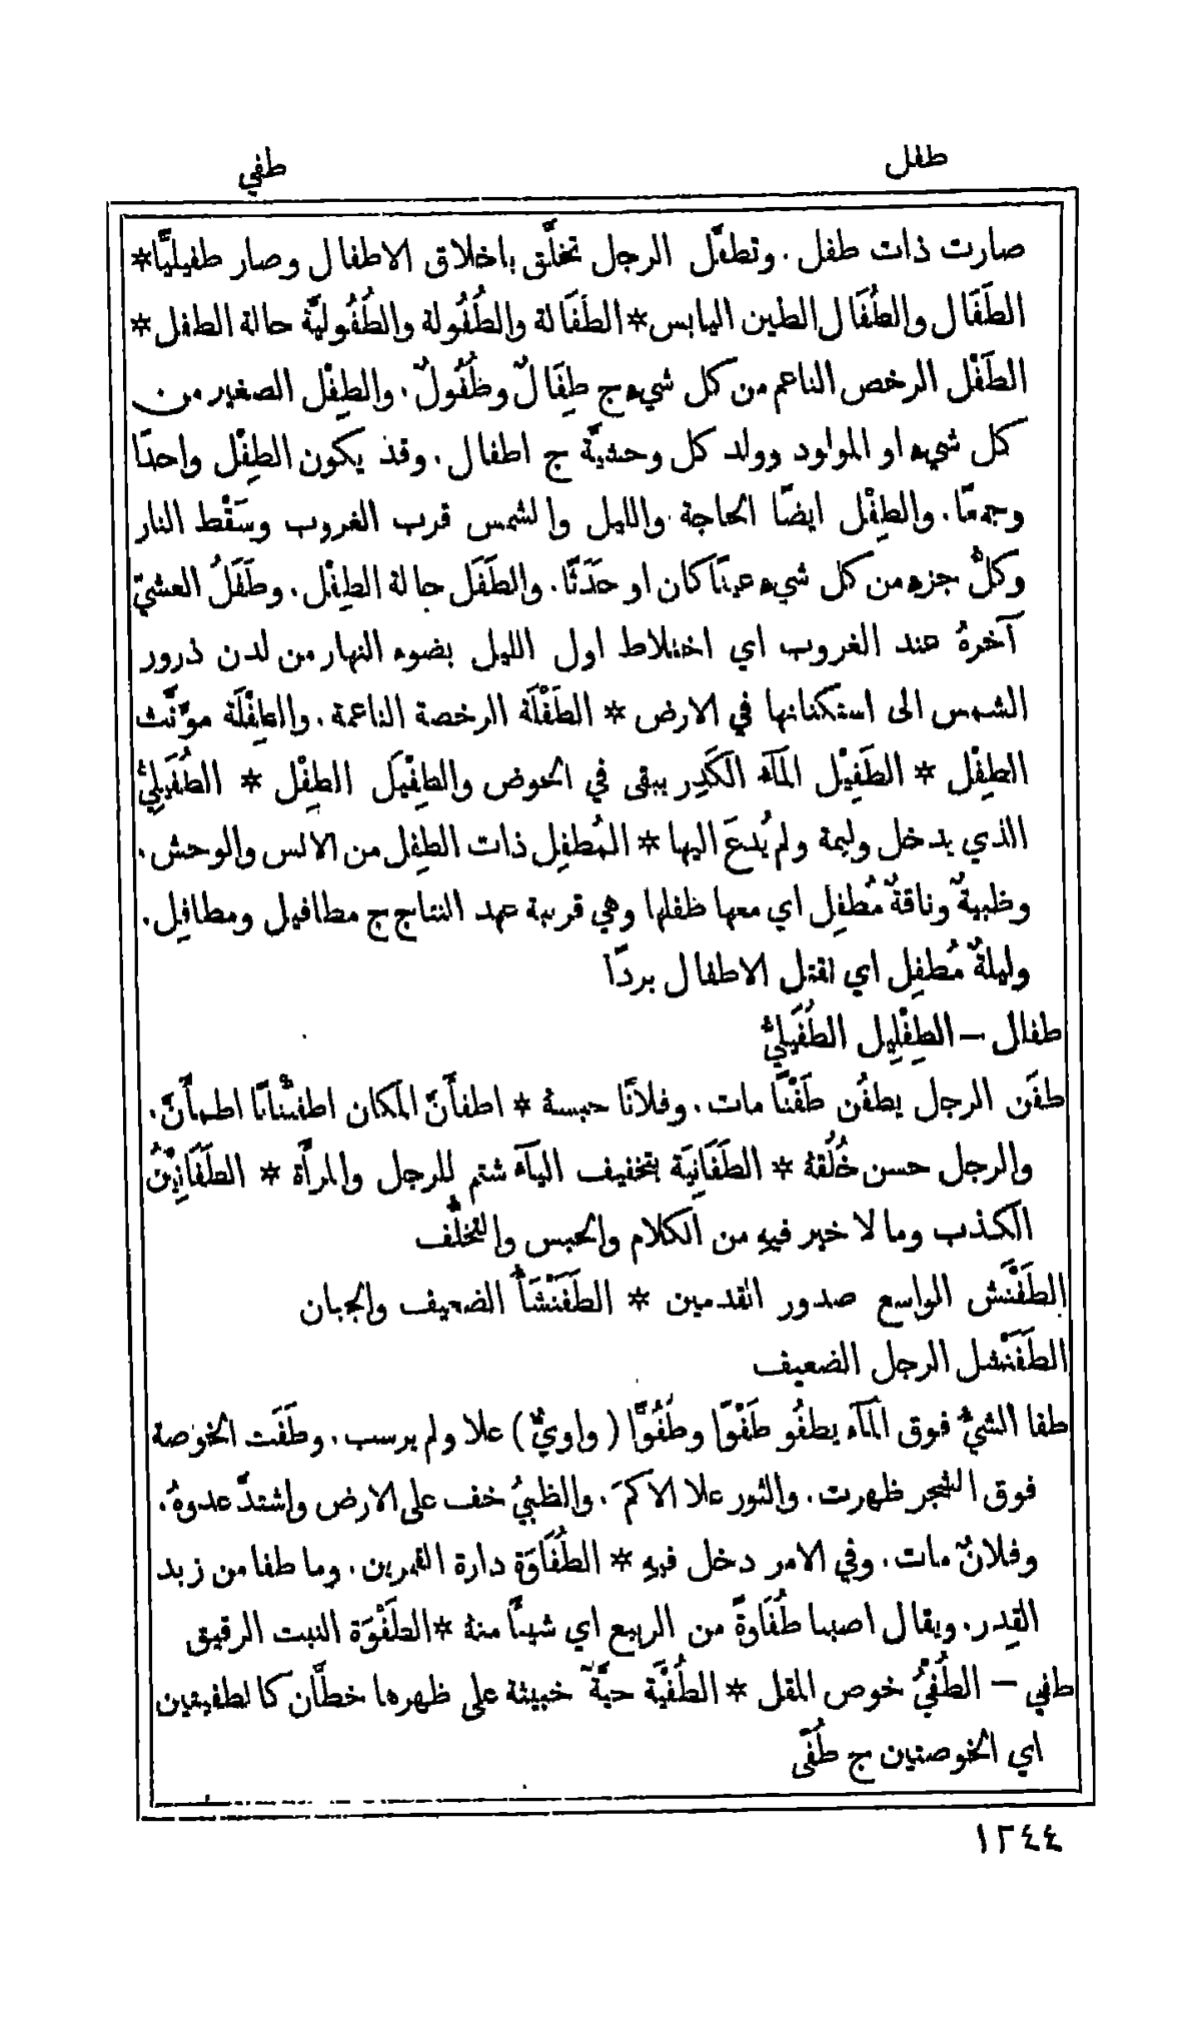 طفل
طفي
صارت ذات طفل. وتطفَّل الرجل تخلَّق باخلاق الاطفال وصار طفيليًّا*
الطَفَال والطُفَال الطين اليابس* الطفَالة والطُفُولة والطُفُوليَّة حالة الطفل*
الطَفْل الرخص الناعم من كل شيءٍ ج طِفَالٌ وطُفُولٌ. والطِفْل الصغير من
كل شيءٍ او المولود وولد كل وحشيَّة ج اطفال. وقد يكون الطِفْل واحدًا
وجمعًا. والطِفْل ايضًا الحاجة والليل والشمس قرب الغروب وسَقْط النار
وكلُّ جزء من كل شيء عينًا كان او حَدَثًا. والطَفَل حالة الطِفْل. وطَفَلُ العشيّ
آخرهُ عند الغروب اي اختلاط اول الليل بضوء النهار من لدن ذرور
الشمس الى استكنانها في الارض * الطَفْلَة الرخصة الناعمة. والطِفْلَة مؤنَّث
الطِفْل * الطَفِيْل المآء الكَدِر يبقى في الحوض والطِفْيَل الطِفْل * الطُفَيلِيُّ
الذي يدخل وليمة ولم يُدعَ اليها * المُطفِل ذات الطِفل من الانس والوحش.
وظبيةٌ وناقةٌ مُطفِل اي معها طفلها وهي قريبة عهد النتاج ج مطافيل ومطافِل.
وليلةٌ مُطفِل اي تقتل الاطفال بردًا
طفلل – الطِفْلِيل الطُفَيليُّ
طفَن الرجل يطفُن طَفْنًا مات. وفلانًا حبسهُ * اطفأَنَّ المكان اطفئنانًا اطمأَنَّ.
والرجل حسن خُلُقهُ * الطَفَانِيَة بتخفيف اليآء شتم للرجل والمرأَة * الطَفَانِيْنُ
الكذب وما لا خير فيهِ من الكلام والحبس والتخلُّف
الطَفَنَّش الواسع صدور القدمين * الطَفَنْشَأُ الضعيف والجبان
الطَفَنْشل الرجل الضعيف
طفا الشيُّ فوق المآء يطفُو طَفْوًا وطُفُوًّا (واويٌّ) علا ولم يرسب. وطَفَت الخوصة
فوق الشجر ظهرت. والثور علا الأكمَ. والظبيُ خف على الارض واشتدَّ عدوهُ.
وفلانٌ مات. وفي الامر دخل فيهِ * الطُفَاوَة دارة القمرين. وما طفا من زبد
القِدر. ويقال اصبنا طُفَاوةً من الربيع اي شيئًا منهُ *الطَفْوَة النبت الرقيق
طفي – الطُفْيُ خوص المقل * الطُفْيَة حيَّةٌ خبيثة على ظهرها خطَّان كالطفيتين
اي الخوصتين ج طُفًى
١٢٤٤